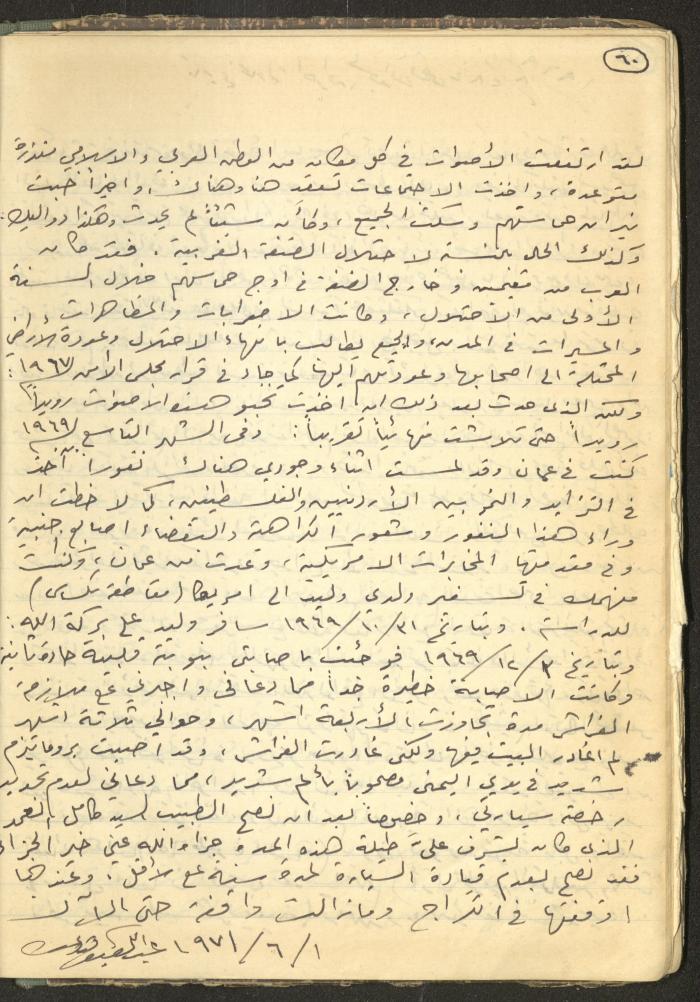 ٦٠
لقد ارتفعت الأصوات في كل مكان من الوطن العربي والاسلامي منذرة
متوعدة، واخذت الاجتماعات تنعقد هنا وهناك، واخيراً خبت
نيران حماستهم وسكت الجميع، وكأن شيئاً لم يحدث وهكذا دواليك.
وكذلك الحال بالنسبة لاحتلال الضفة الغربية. فقد كان
العرب من مقيمين في خارج الضفة في اوج حماستهم خلال السنة
الأولى من الاحتلال، وكانت الاضرابات والمظاهرات
والمسيرات في المدن، والجميع يطالب بانهاء الاحتلال وعودة الاراضي
المحتلة الى اصحابها وعودتهم اليها كما جاء في قرار مجلس الأمن ١٩٦٧:
ولكن الذي حدث بعد ذلك ان اخذت تخبو هذه الاصوات رويداً
رويداً حتى تلاشت نهائياً تقريباً: وفي الشهر التاسع ١٩٦٩
كنت في عمان وقد لمست اثناء وجودي هناك نفوراً آخذ
في التزايد والنمو بين الأردنيين والفلسطينين، كما لاحظت ان
وراء هذا النفور وشعور الكراهة والبغضاء اصابع
وفي مقدمتها المخابرات الامريكية، وعدت من عمان، وكنت
منهمك في تسفير ولدي وليد الى امريكا (مقاطعة تكساس)
للدراسة. وبتاريخ ٣١/١٠/١٩٦٩ سافر وليد على بركة الله:
وبتاريخ ٣/١٢/١٩٦٩ فوجئت باصابتي بنوبة قلبية حادة ثانية
وكانت الاصابة خطيرة جداً مما دعاني واجبرني على ملازمة
الفراش مدة تجاوزت الأربعة اشهر، وحوالي ثلاثة اشهر
لم اغادر البيت فيها ولكني غادرت الفراش، وقد اصبت بروماتيزم
شديد في يدي اليمنى مصحوباً بألم شديد، مما دعاني لعدم تجديد
رخصة سيارتي، وخصوصاً بعد ان نصح الطبيب السيد كامل
الذي كان يشرف عليّ طيلة هذه المدة جزاه الله عني خير الجزاء
فقد نصح بعدم قيادة السيارة لمدة سنة على الاقل، وعندها
اوقفتها في الكراج وما زالت واقفة حتى الآن
١/٦/١٩٧١